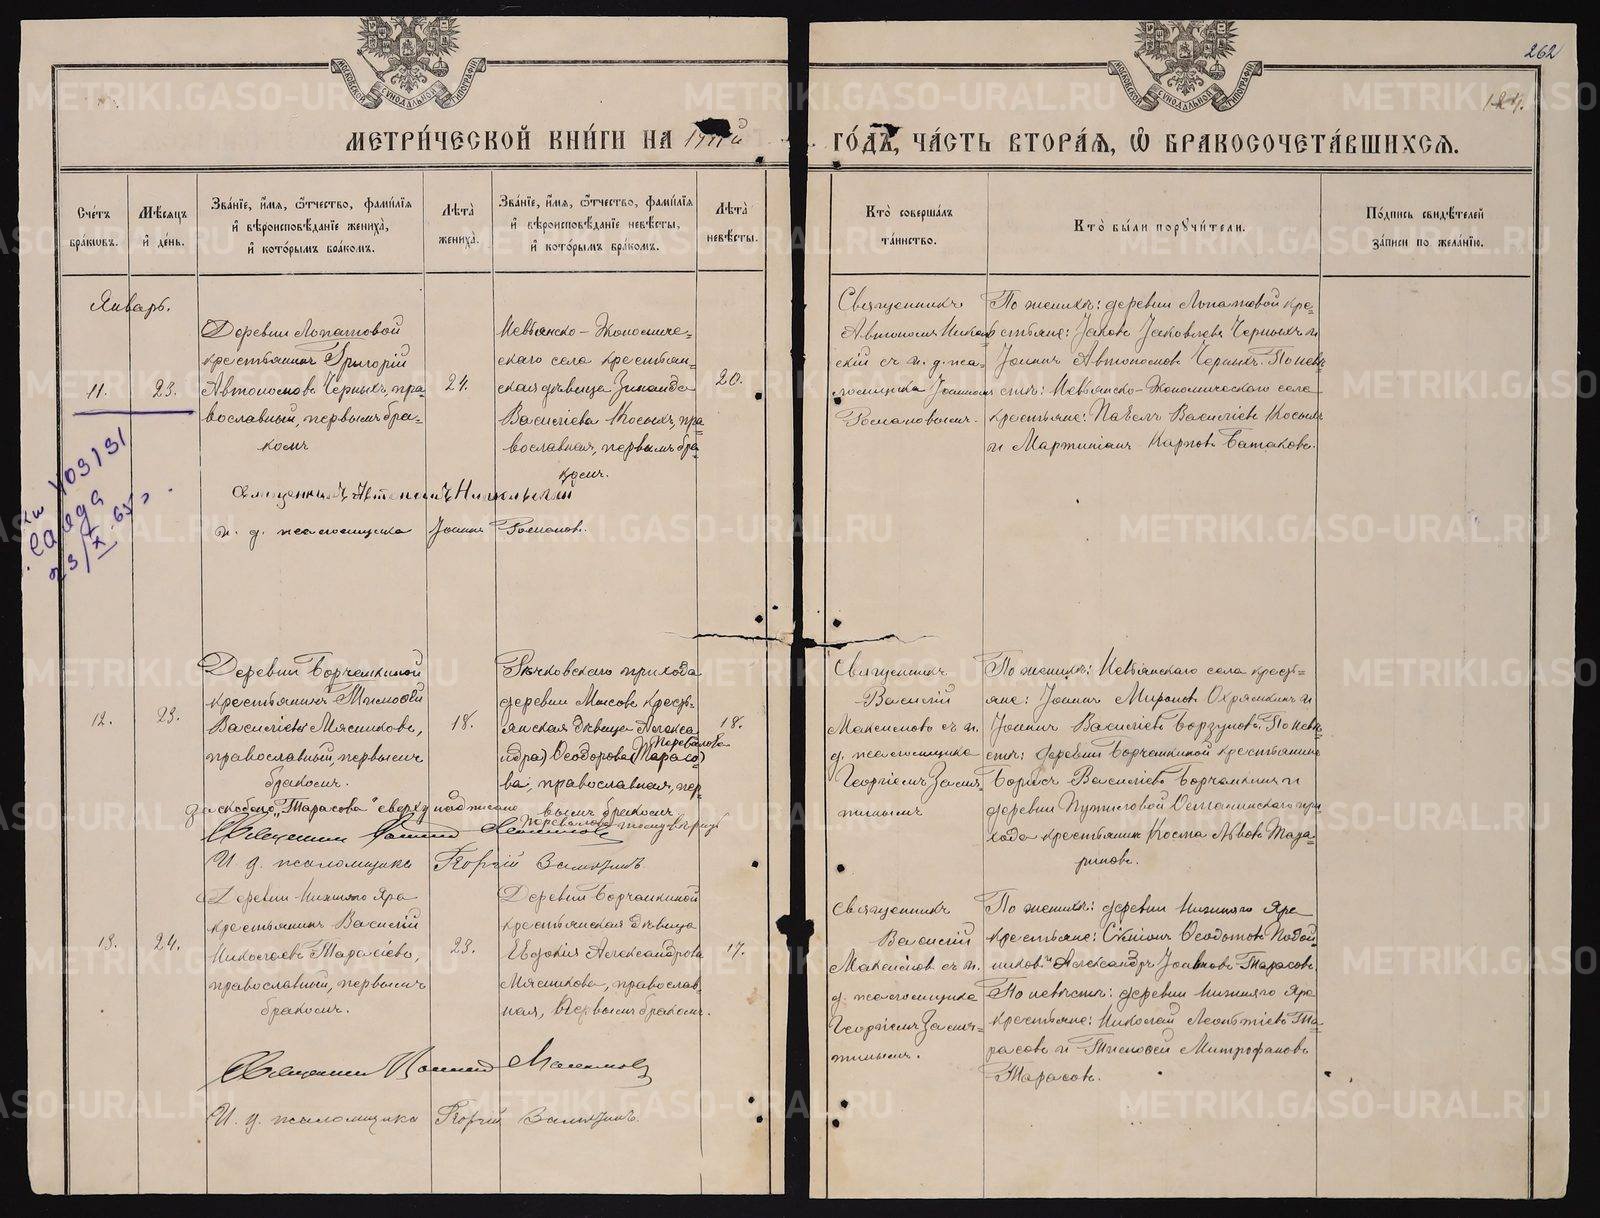 262
МОСКОВСКОЙ СѴНОДАЛЬНОЙ ТИПОГРАФІИ
МОСКОВСКОЙ СѴНОДАЛЬНОЙ ТИПОГРАФІИ
МЕТРИ́ЧЕСКОЙ КНИ́ГИ НА
ГО́ДЪ, ЧА́СТЬ ВТОРА́Я, Ѽ БРАКОСОЧЕТА́ВШИХСЯ.
Сче́тъ бра́ковъ.
Мѣ́сяцъ и҆ де́нь.
Зва́нїе, и҆́мя, ѻ҆́тчество, фами́лїя
и҆ вѣроисповѣ́данїе жениха̀,
и҆ кото́рымъ бра́комъ.
Лѣ́та жениха̀.
Зва́нїе, и҆́мя, ѻ҆́тчество, фами́лїя
и҆ вѣроисповѣ́данїе невѣ́сты,
и҆ кото́рымъ бра́комъ.
Лѣ́та невѣ́сты.
Кто̀ соверша́лъ
та́инство.
Кто̀ бы́ли поручи́тели.
По́дпись свидѣ́телей
за́писи по жела́нїю.
Январь.
11.
23.
Деревни Лопатовой
крестьянинъ Григорій
Автономовъ Черныхъ, пра=
вославный, первымъ бра=
комъ
24.
Невьянско-Экономиче=
скаго села крестьян=
ская дѣвица Зинаида
Василіева Косыхъ, пра=
вославная, первымъ бра=
комъ.
20.
Священникъ
Автономъ Николь
скій съ и. д. пса=
ломщика Іоанномъ
Романовымъ.
По женихѣ: деревни Лопатовой кре=
стьяне: Іаковъ Іаковлевъ Черныхъ и
Іоаннъ Автономовъ Черныхъ. По невѣ
стѣ: Невьянско-Экономическаго села
крестьяне: Павелъ Василіевъ Косыхъ
и Мартиніанъ Карповъ Батаковъ.
Священникъ Автономъ Никольскій
и. д. псаломщика Іоаннъ Романовъ.
23/X 65
12.
23.
Деревни Борчаниковой
крестьянинъ Тимоѳей
Василіевъ Мясниковъ,
православный, первымъ
бракомъ.
18.
Рѣчковскаго прихода
деревни Мысовъ крест=
янская дѣвица Алекса
ндра Ѳеодорова (Тарасо)
Перевалова
ва, православная, пер=
вымъ бракомъ
18.
Священникъ
Василій
Максимовъ съ и.
д. псаломщика
Георгіемъ
По женихѣ: Невьянскаго села крест=
яне: Іоаннъ Мироновъ Охрямкинъ и
Іоаннъ Василіевъ Борзуновъ. По невѣ
стѣ: деревни Борчаниковой крестьянинъ
Борисъ Василіевъ и
деревни
хода крестьянинъ Косма Львовъ
„Тарасова" сверху надписано
Перевалова тому вѣрить
Священникъ Василій Максимовъ
И. д. псаломщика Георгій
13.
24.
Деревни Нижняго Яра
крестьянинъ Василій
Николаевъ Тарасіевъ,
православный, первымъ
бракомъ.
23.
Деревни Борчаниковой
крестьянская дѣвица
Евдокія Александрова
Мясникова, православ=
ная, первымъ бракомъ.
17.
Священникъ
Василій
Максимовъ съ и.
д. псаломщика
Георгіемъ
По женихѣ: деревни Нижняго Яра
крестьяне: Симеонъ Ѳеодотовъ Подой=
никовъ и Александръ Іоанновъ Тарасовъ.
По невѣстѣ: деревни Нижняго Яра
крестьяне: Николай Леонтіевъ Та=
расовъ и Тимоѳей Митрофановъ
Тарасовъ.
Священникъ Василій Максимовъ
И. д. псаломщика Георгій
METRIKI.GASO-URAL.RU